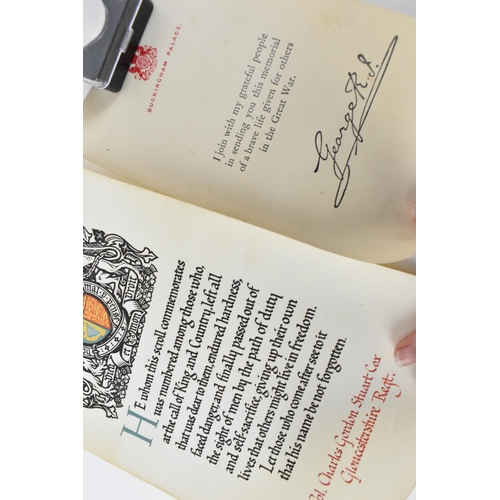 BUCKINGHAM PALACE.
I join with my grateful people
in sending you this memorial
of a brave life given for others
in the Great War.
George R.I.
HE whom this scroll commemorates
was numbered among those who,
at the call of King and Country, left all
that was dear to them, endured hardness,
faced danger, and finally passed out of
the sight of men by the path of duty
and self-sacrifice, giving up their own
lives that others might live in freedom.
Let those who come after see to it
that his name be not forgotten.
Col. Charles Gordon Stuart Cox
Gloucestershire Regt.